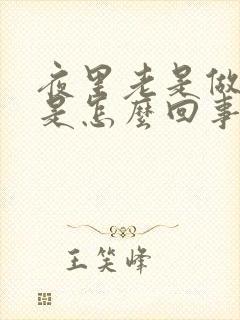 夜里老是做
是怎麼回事
王笑峰